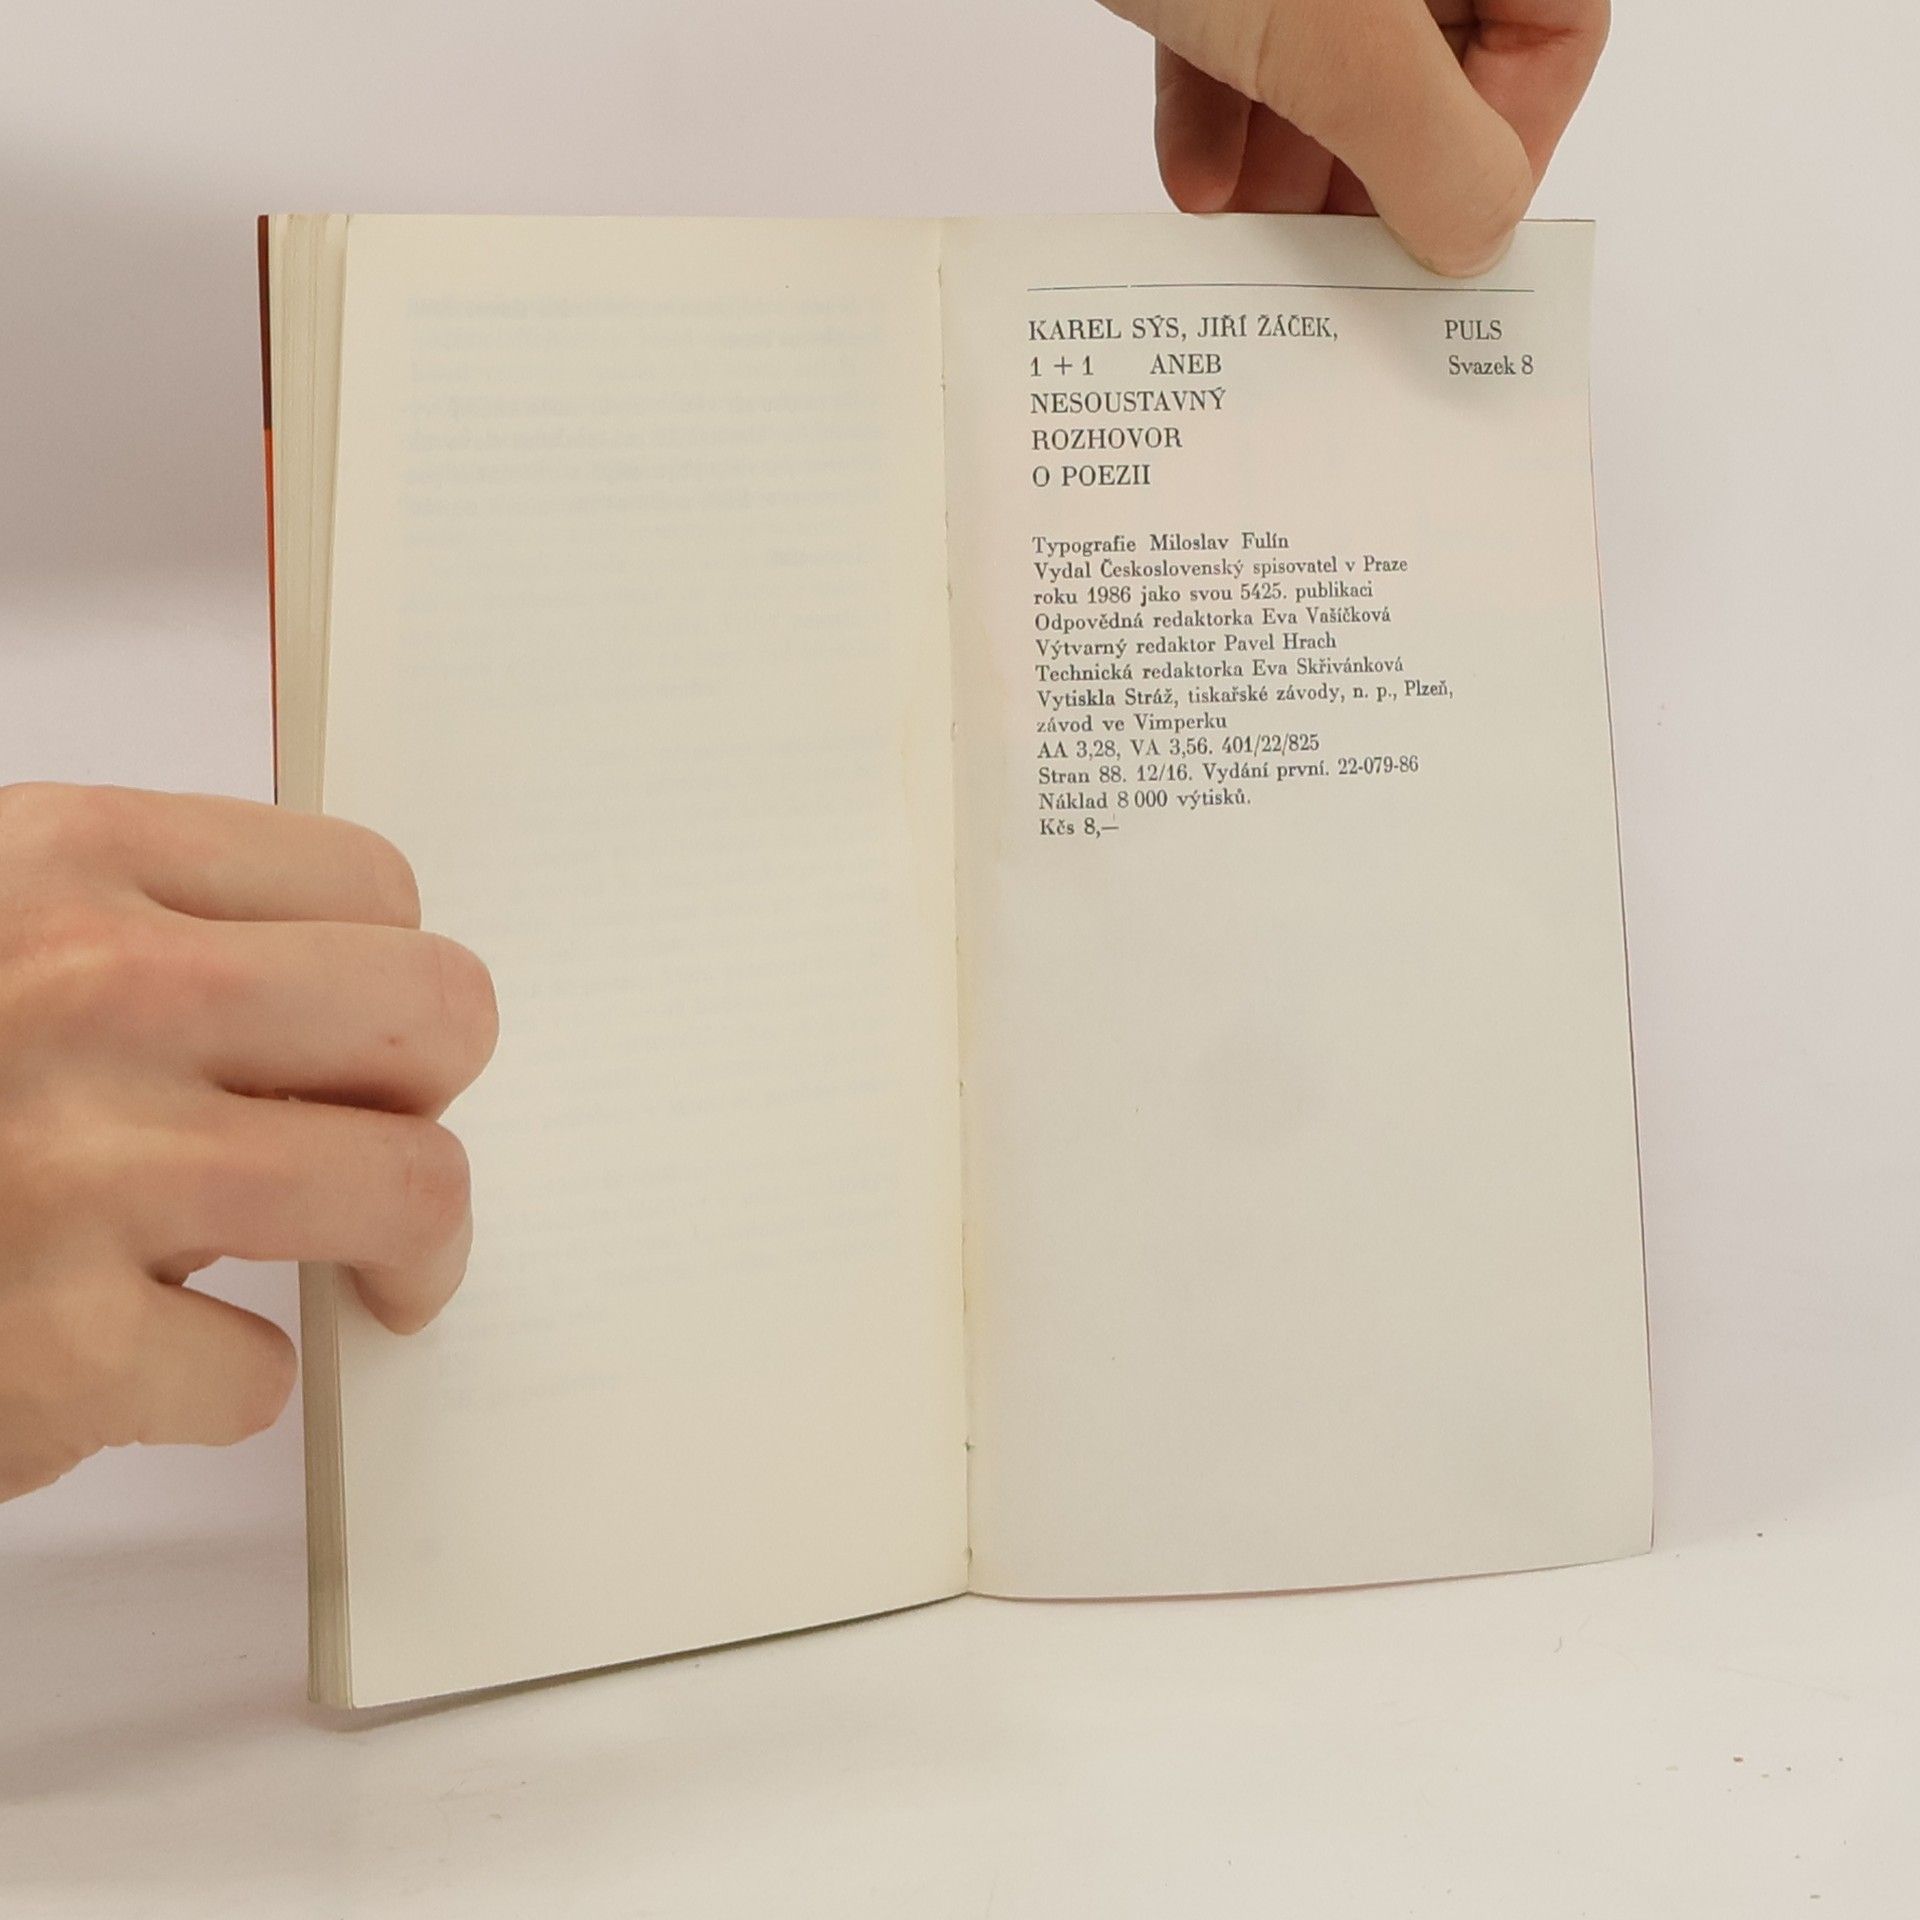 KAREL SÝS, JIŘÍ ŽÁČEK,
1 + 1 ANEB
NESOUSTAVNÝ
ROZHOVOR
O POEZII
PULS
Svazek 8
Typografie Miloslav Fulín
Vydal Československý spisovatel v Praze
roku 1986 jako svou 5425. publikaci
Odpovědná redaktorka Eva Vašíčková
Výtvarný redaktor Pavel Hrach
Technická redaktorka Eva Skřivánková
Vytiskla Stráž, tiskařské závody, n. p., Plzeň,
závod ve Vimperku
AA 3,28, VA 3,56. 401/22/825
Stran 88. 12/16. Vydání první. 22-079-86
Náklad 8 000 výtisků.
Kčs 8,—